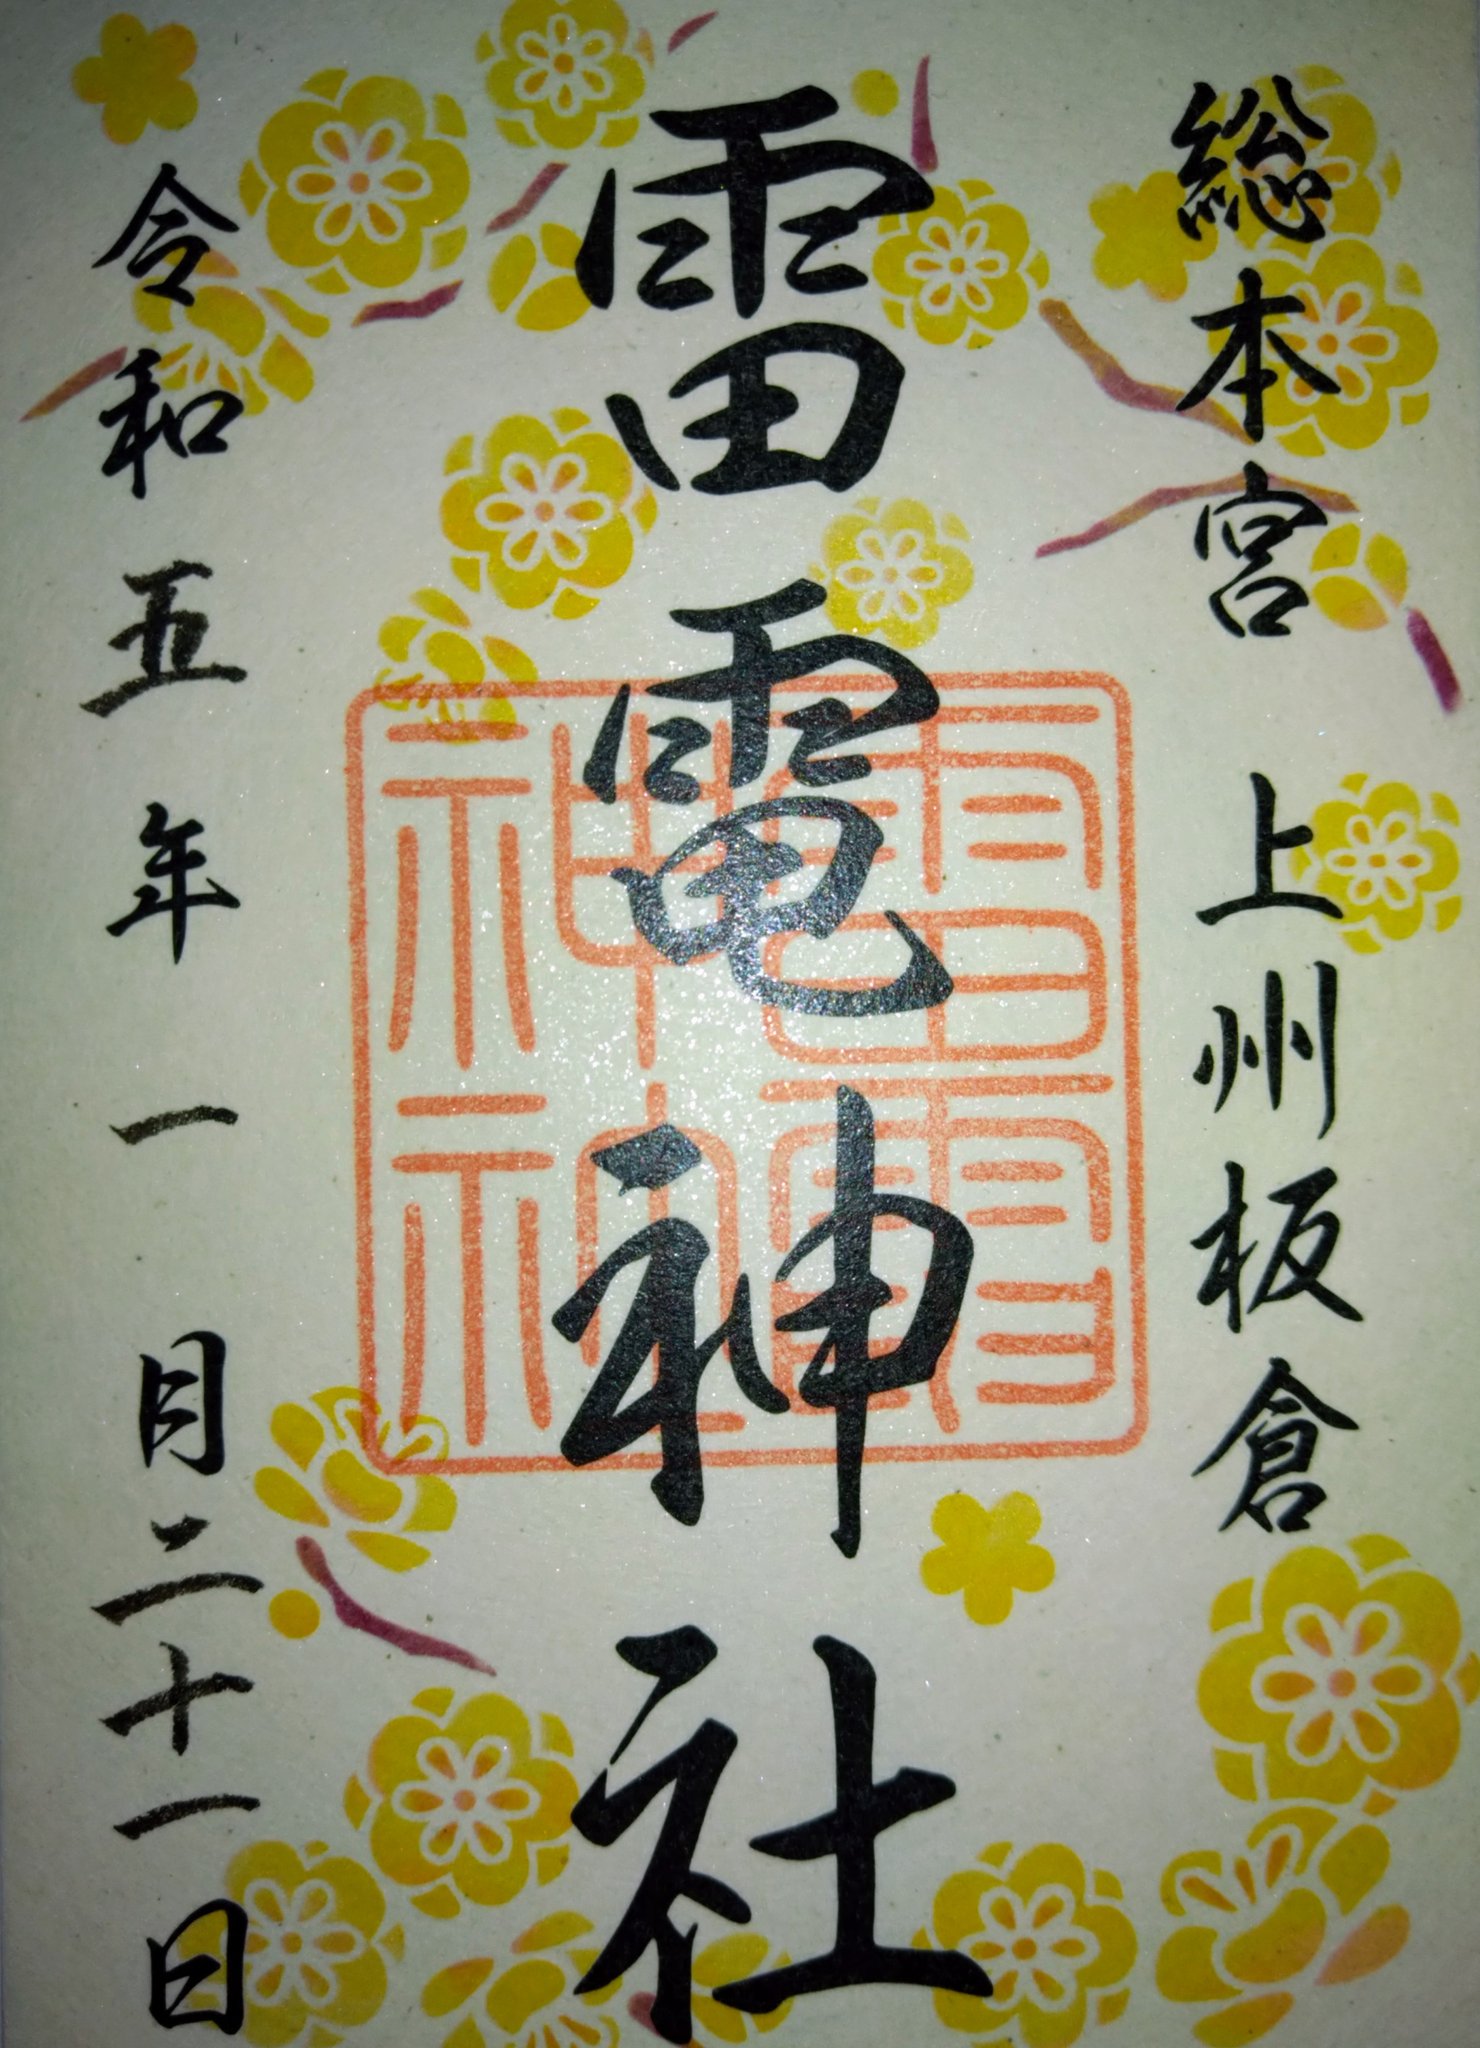 総本宮 上州板倉
雷電神社
令和五年一月二十一日
雷電
神社